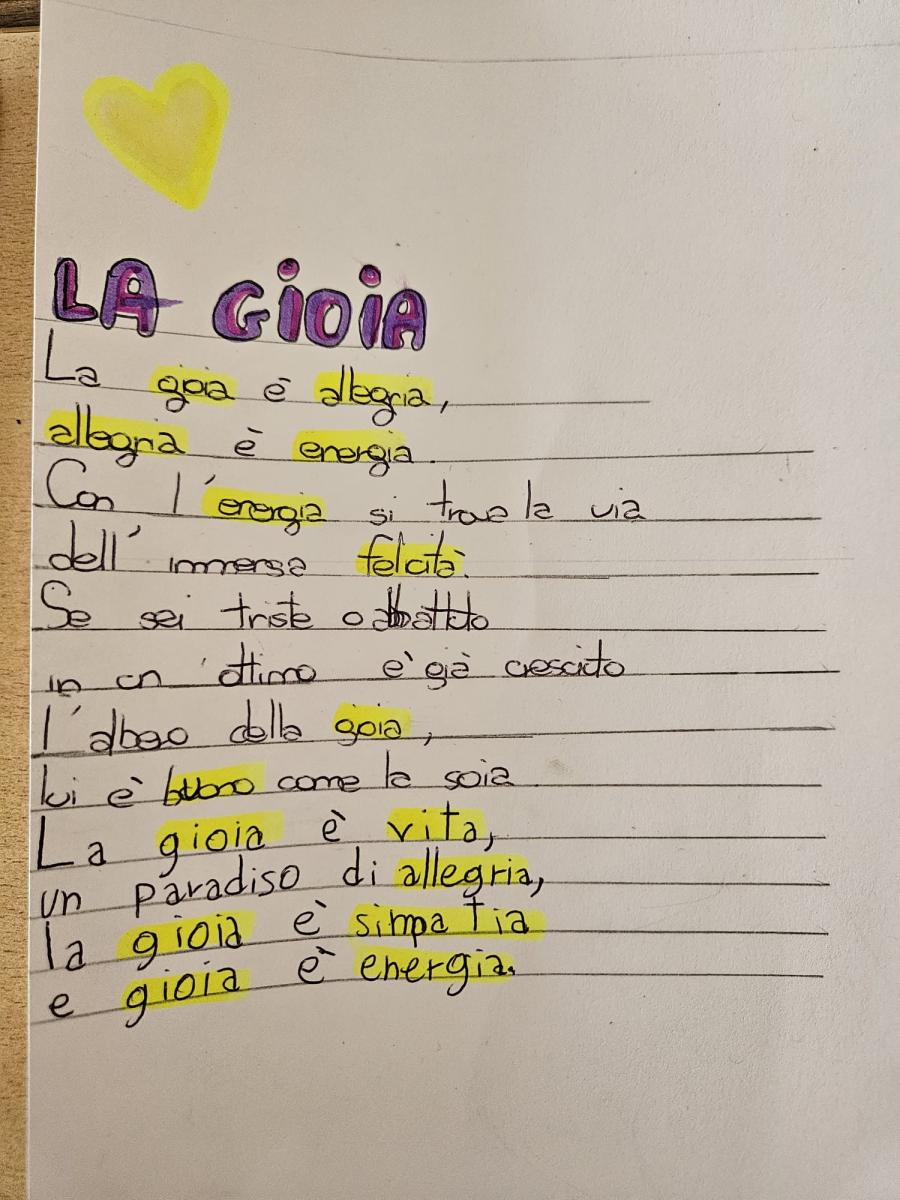 LA GIOIA
La gioia è allegria,
allegria è energia.
Con l'energia si trova la via
dell'immensa felicità.
Se sei triste o abbattuto
in un'ottimo è già cresciuto
l'albero della gioia,
lui è buono come la soia.
La gioia è vita,
un paradiso di allegria,
la gioia è simpatia
e gioia è energia.